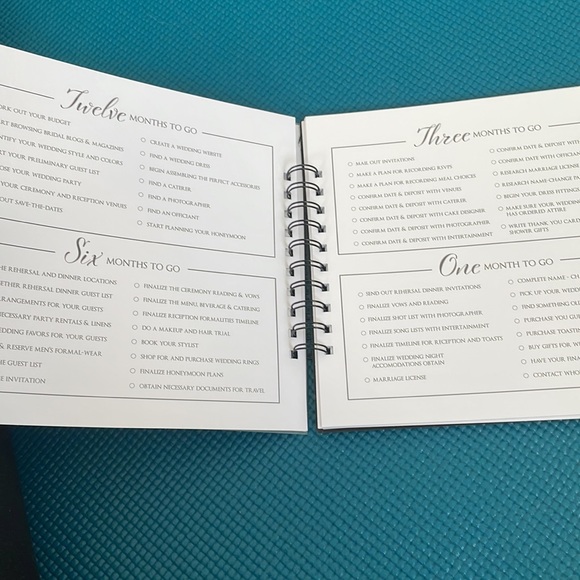 Twelve MONTHS TO GO
ORK OUT YOUR BUDGET
RT BROWSING BRIDAL BLOGS & MAGAZINES
NTIFY YOUR WEDDING STYLE AND COLORS
RT YOUR PRELIMINARY GUEST LIST
OSE YOUR WEDDING PARTY
YOUR CEREMONY AND RECEPTION VENUES
OUT SAVE-THE-DATES
CREATE A WEDDING WEBSITE
FIND A WEDDING DRESS
BEGIN ASSEMBLING THE PERFECT ACCESSORIES
FIND A CATERER
FIND A PHOTOGRAPHER
FIND AN OFFICIANT
START PLANNING YOUR HONEYMOON
Six MONTHS TO GO
HE REHERSAL AND DINNER LOCATIONS
ETHER REHERSAL DINNER GUEST LIST
RRANGEMENTS FOR YOUR GUESTS
NECESSARY PARTY RENTALS & LINENS
WEDDING FAVORS FOR YOUR GUESTS
& RESERVE MEN'S FORMAL-WEAR
HE GUEST LIST
E INVITATION
FINALIZE THE CEREMONY READING & VOWS
FINALIZE THE MENU BEVERAGE & CATERING
FINALIZE RECEPTION FORMALITIES TIMELINE
DO A MAKUP AND HAIR TRIAL
BOOK YOUR STYLIST
SHOP FOR AND PURCHASE WEDDING RINGS
FINALIZE HONEYMOON PLANS
OBTAIN NECESSARY DOCUMENTS FOR TRAVEL
Three MONTHS TO GO
MAIL OUT INVITATIONS
MAKE A PLAN FOR RECORDING RSVPS
MAKE A PLAN FOR RECORDING MEAL CHOICES
CONFIRM DATE & DEPOSIT WITH VENUES
CONFIRM DATE & DEPOSIT WITH CATERER
CONFIRM DATE & DEPOSIT WITH CAKE DESIGNER
CONFIRM DATE & DEPOSIT WITH PHOTOGRAPHER
CONFIRM DATE & DEPOSIT WITH ENTERTAINMENT
CONFIRM DATE & DEPOSIT W
CONFIRM DATE WITH OFFICIAN
RESEARCH MARRIAGE LICENS
RESEARCH NAME CHANGE PA
BEGIN YOUR DRESS FITTINGS
MAKE SURE YOUR WEDDING
HAS ORDERED ATTIRE
WRITE THANK YOU CARD
SHOWER GIFTS
One MONTH TO GO
SEND OUT REHERSAL DINNER INVITATIONS
FINALIZE VOWS AND READING
FINALIZE SHOT LIST WITH PHOTOGRAPHER
FINALIZE SONG LISTS WITH ENTERTAINMENT
FINALIZE TIMELINE FOR RECEPTION AND TOASTS
FINALIZE WEDDING NIGHT
ACCOMODATIONS OBTAIN
MARRIAGE LICENSE
COMPLETE NAME - CH
PICK UP YOUR WEDD
FIND SOMETHING OL
PURCHASE YOU GUE
PURCHASE TOASTIN
BUY GIFTS FOR W
HAVE YOUR FINA
CONTACT WHO